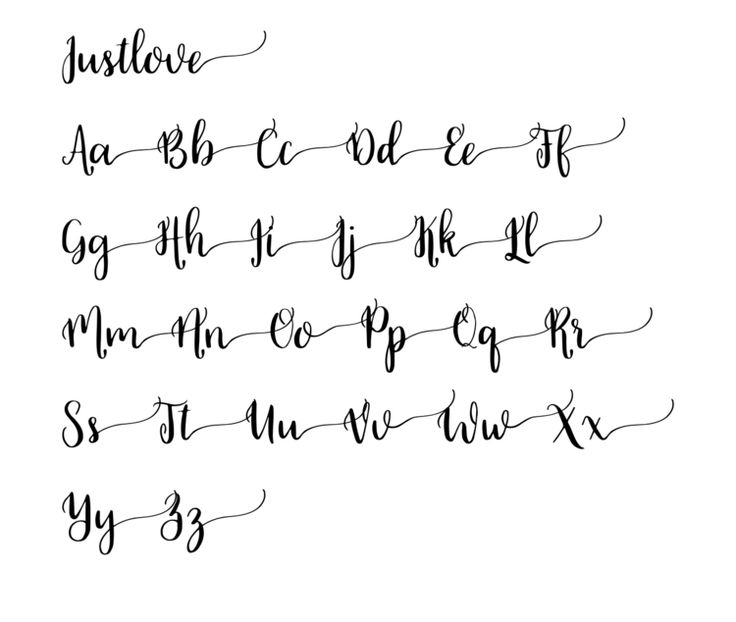 Justlove
Aa Bb Cc Dd Ee Ff
Gg Hh Ii Jj Kk Ll
Mm Nn Oo Pp Qq Rr
Ss Tt Uu Vv Ww Xx
Yy Zz